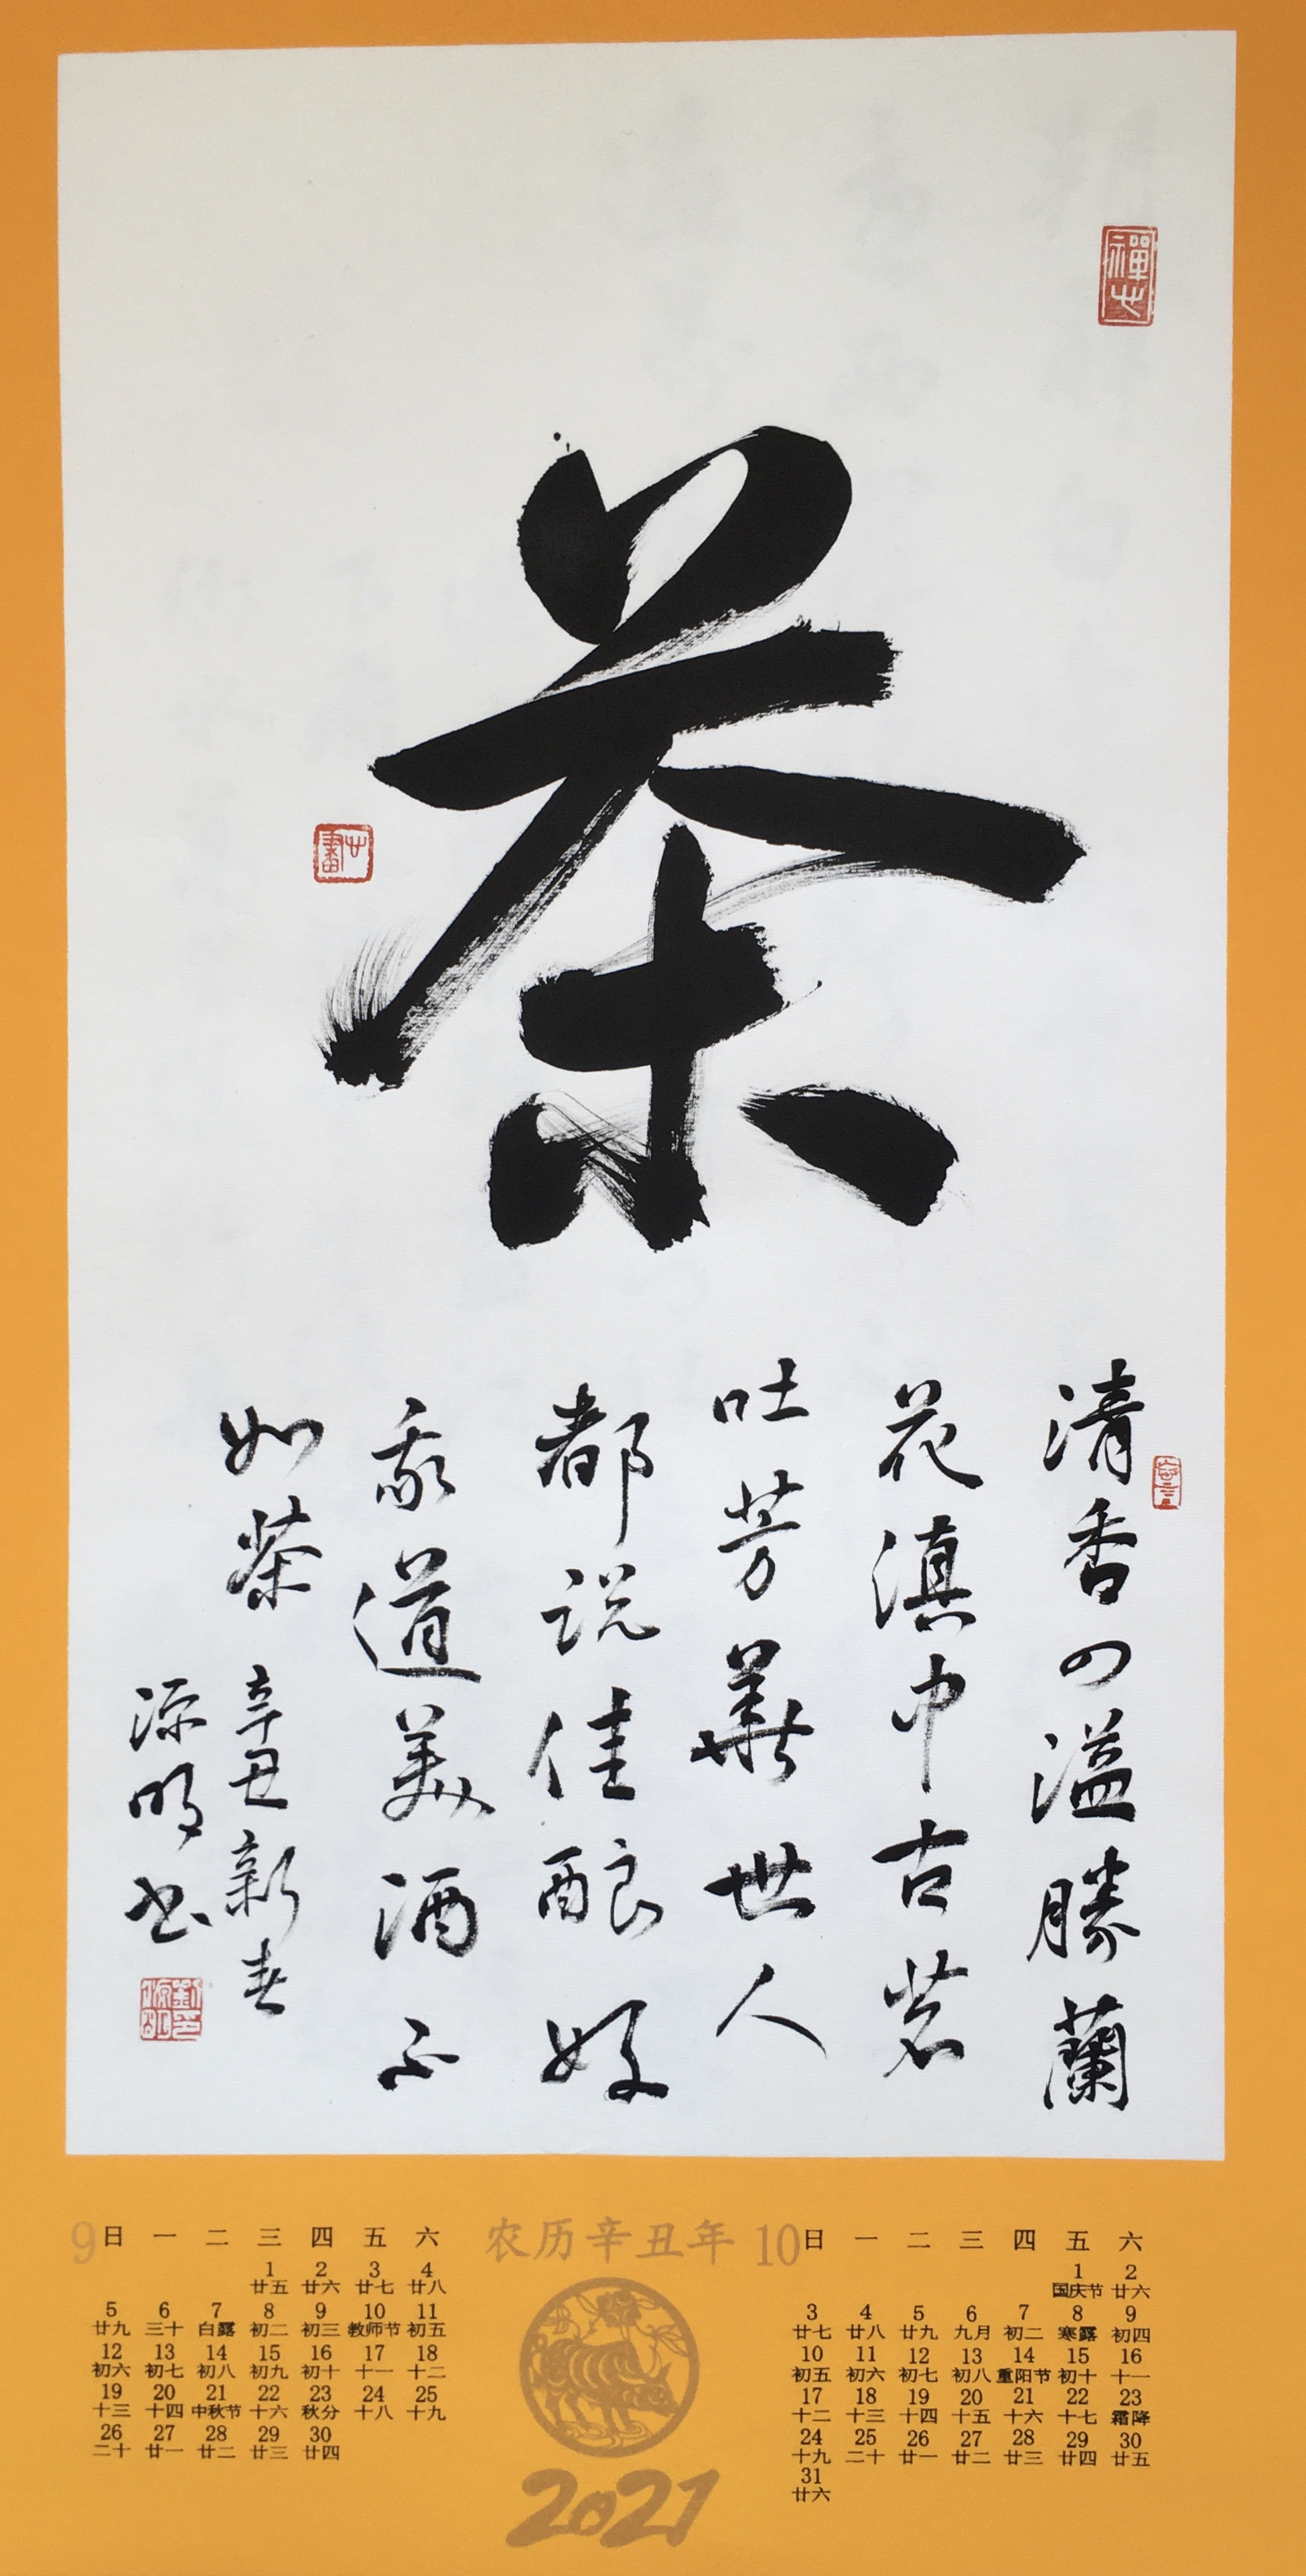 茶
清香四溢勝蘭
花滇中古茗
吐芳華世人
都说佳酿好
我道美酒不
如茶 辛丑新春
源明书
9
日 一 二 三 四 五 六
1 2 3 4
廿五 廿六 廿七 廿八
5 6 7 8 9 10 11
廿九 三十 白露 初二 初三 教师节 初五
12 13 14 15 16 17 18
初六 初七 初八 初九 初十 十一 十二
19 20 21 22 23 24 25
十三 十四 中秋节 十六 秋分 十八 十九
26 27 28 29 30
二十 廿一 廿二 廿三 廿四
农历辛丑年
2021
10
日 一 二 三 四 五 六
1 2
国庆节 廿六
3 4 5 6 7 8 9
廿七 廿八 廿九 九月 初二 寒露 初四
10 11 12 13 14 15 16
初五 初六 初七 初八 重阳节 初十 十一
17 18 19 20 21 22 23
十二 十三 十四 十五 十六 十七 霜降
24 25 26 27 28 29 30
十九 二十 廿一 廿二 廿三 廿四 廿五
31
廿六